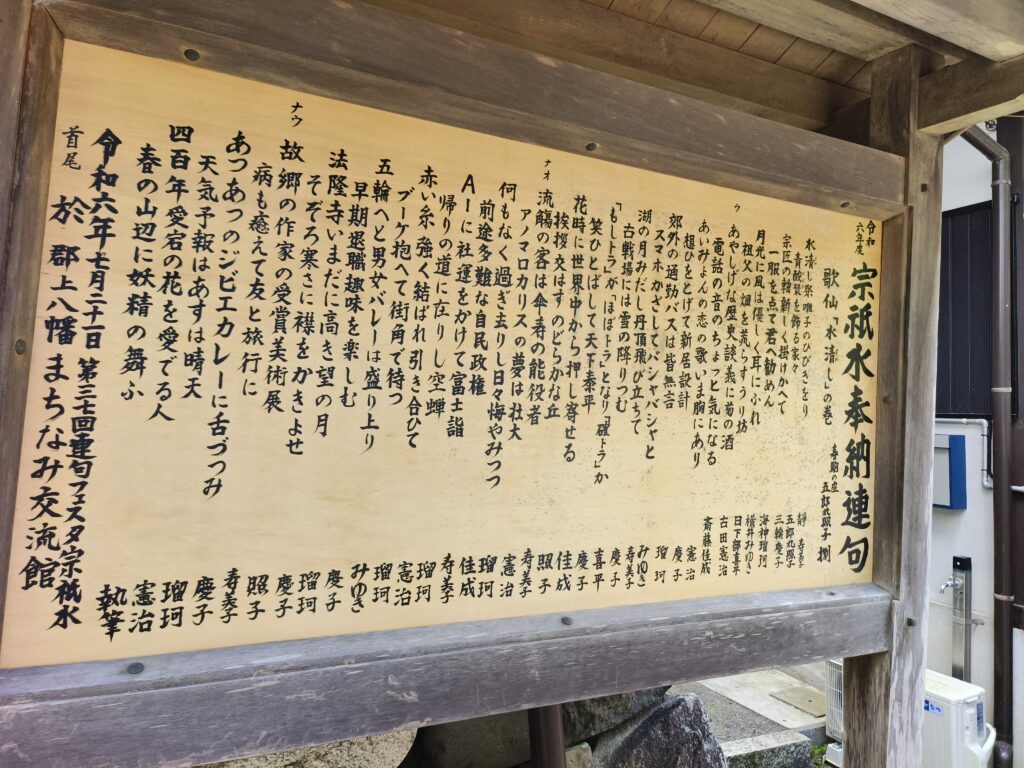 令和六年度 宗祇水奉納連句
歌仙「水清し」の巻 五郎丸照子 捌
水清し祭囃子のひびきをり 静 寿美子
青酸漿を飾る家々 五郎丸照子
宗匠の 新しく掛けかへて 三輪慶子
一服を点て君へ勧めん 海神瑠珂
月光に風は優しく耳にふれ 横井みゆき
祖父の畑を荒らすうり坊 日下部喜平
ウ
あやしげな歴史談義に菊の酒 古田憲治
電話の音のちょっと気になる 斎藤佳成
あいみょんの恋の歌いま胸にあり 憲治
想ひをとげて新居設計 慶子
郊外の通勤バスは皆無言 瑠珂
スマホかざしてバシャバシャと みゆき
湖の月みだし丹頂飛び立ちて 寿美子
古戦場には雪の降りつむ 慶子
「もしトラ」が「ほぼトラ」となり「確トラ」か 喜平
笑ひとばして天下泰平 慶子
花時に世界中から押し寄せる 佳成
挨拶交はすのどらかな丘 照子
ナオ
流觴の客は傘寿の能役者 寿美子
アノマロカリスの夢は壮大 憲治
何もなく過ぎ去りし日々悔やみつつ 瑠珂
前途多難な自民政権 佳成
AIに社運をかけて富士詣 寿美子
帰りの道に在りし空蝉 瑠珂
赤い糸強く結ばれ引き合ひて 憲治
ブーケ抱へて街角で待つ 瑠珂
五輪へと男女バレーは盛り上り みゆき
早期退職趣味を楽しむ 慶子
法隆寺いまだに高き望の月 瑠珂
そぞろ寒さに襟をかきよせ 慶子
ナウ
故郷の作家の受賞美術展 照子
病も癒えて友と旅行に 寿美子
あつあつのジビエカレーに舌づつみ 慶子
天気予報はあすは晴天 瑠珂
四百年愛宕の花を愛でる人 憲治
春の山辺に妖精の舞ふ 執筆
令和六年七月二十一日 第三七回連句フェスタ宗祇水
首尾 於 郡上八幡まちなみ交流館